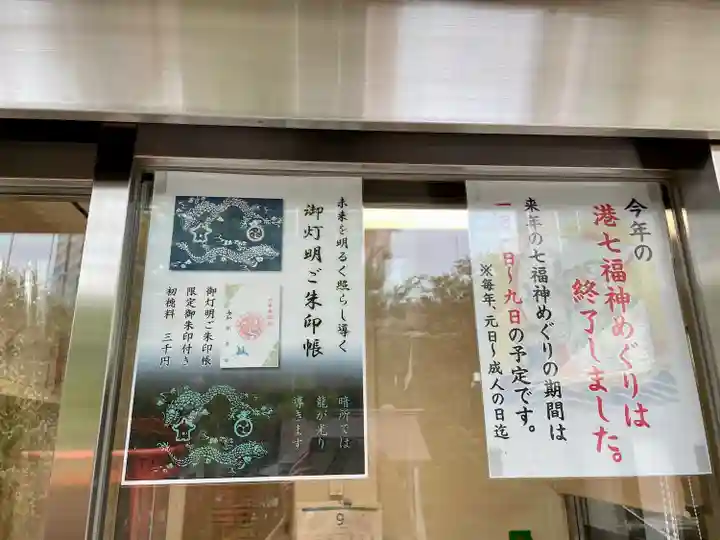 今年の
港七福神めぐりは
終了しました。
来年の七福神めぐりの期間は
一月一日～九日の予定です。
※毎年、元日～成人の日迄
未来を明るく照らし導く
御灯明ご朱印帳
御灯明ご朱印帳
限定御朱印付き
初穂料 三千円
暗所では
龍が光り
導きます
9